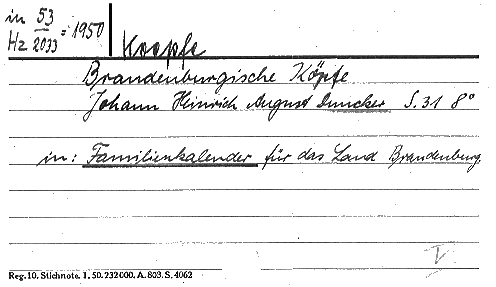 in 53
Hz 2033 = 1950
Koepfe
Brandenburgische Köpfe
Johann Heinrich August Duncker S. 31 8°
in: Familienkalender für das Land Brandenburg.
V
Reg. 10. Stichnote. 1. 50. 232000. A. 803. S. 4062